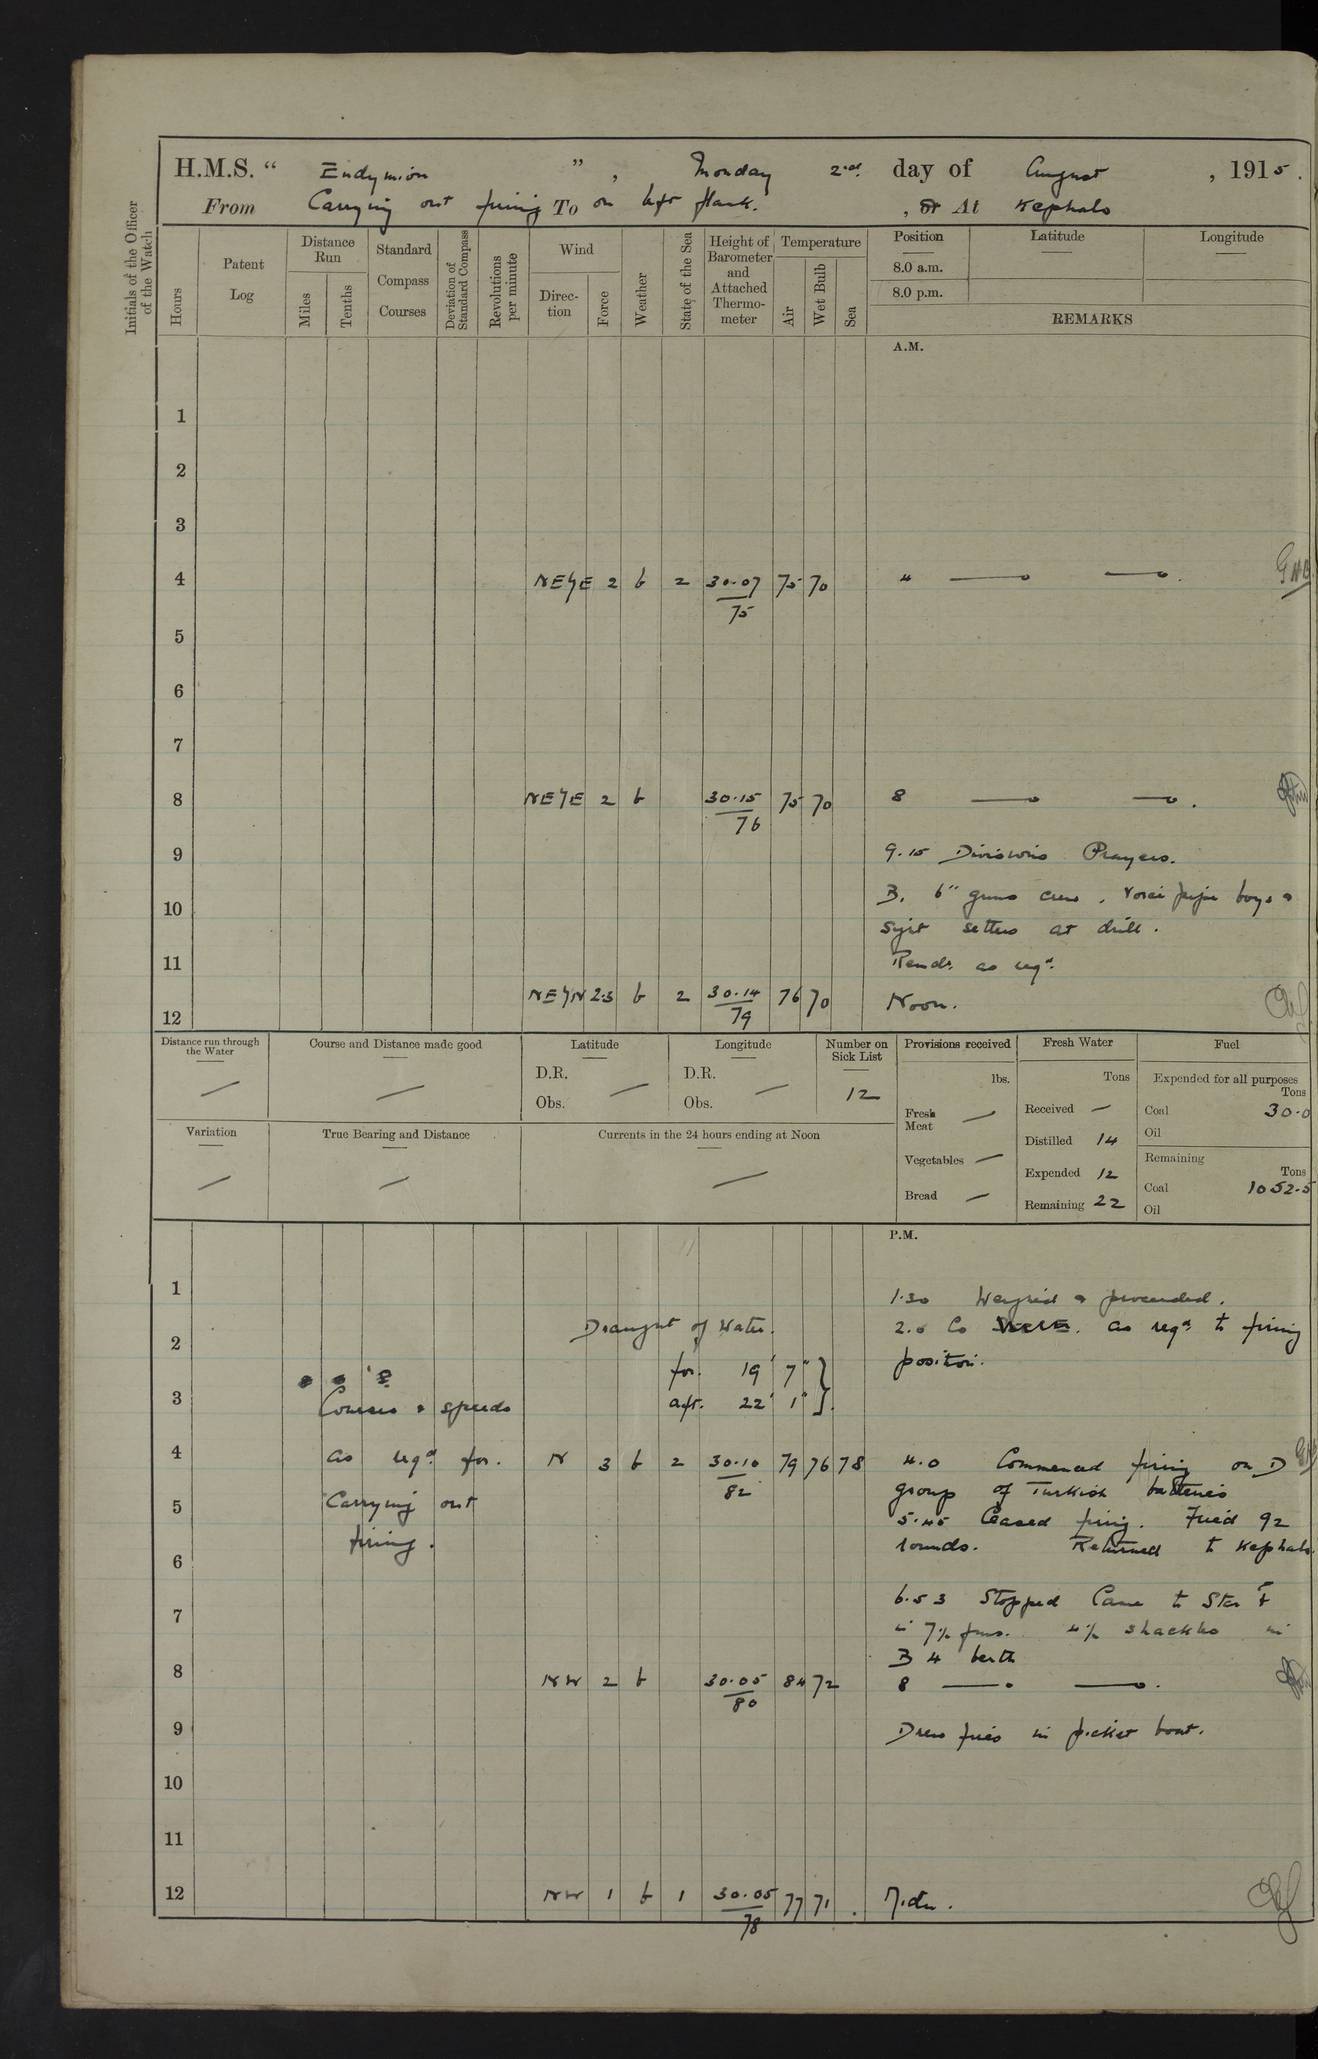 H.M.S. “ Endymion ”, Monday 2nd day of August, 1915.
From Carrying out firing To on left flank. , or At Kephalo
Initials of the Officer of the Watch
Hours
Patent Log
Distance Run
Miles
Tenths
Standard Compass Courses
Deviation of Standard Compass
Revolutions per minute
Wind
Direction
Force
Weather
State of the Sea
Height of Barometer and Attached Thermometer
Temperature
Air
Wet Bulb
Sea
Position
8.0 a.m.
8.0 p.m.
Latitude
Longitude
REMARKS
A.M.
1
2
3
4 NE½E 2 b 2 30.07 75 75 70 4
5
6
7
8 NE½E 2 b 30.15 76 75 70 8
9 9.15 Divisions Prayers.
10 B. 6" guns crew, Voice pipe boys &
sight setters at drill.
11 Hands as reqd.
12 NE½N 2.3 b 2 30.14 79 76 70 Noon.
Distance run through the Water
Course and Distance made good
Latitude
D.R.
Obs.
Longitude
D.R.
Obs.
Number on Sick List
12
Variation
True Bearing and Distance
Currents in the 24 hours ending at Noon
Provisions received
lbs.
Fresh Meat
Vegetables
Bread
Fresh Water
Tons
Received
Distilled 14
Expended 12
Remaining 22
Fuel
Expended for all purposes
Tons
Coal 30.0
Oil
Remaining
Tons
Coal 1052.5
Oil
P.M.
1 1.30 Weighed & proceeded.
2 Draught of Water. 2.0 Co as reqd to firing
position.
for. 19' 7"
3 Courses & speeds aft. 22' 1"
4 as reqd for. N 3 b 2 30.10 82 79 76 78 4.0 Commenced firing on D
group of Turkish batteries
5 Carrying out 5.45 Ceased firing. Fired 92
6 firing. rounds. Returned to Kephalo
6.53 Stopped Came to Star
7 in 7½ fms. 4½ shackles in
B 4 berth
8 NW 2 b 30.05 80 84 72 8
9 Drew fires in picket boat.
10
11
12 NW 1 b 1 30.05 78 77 71 Mdn.